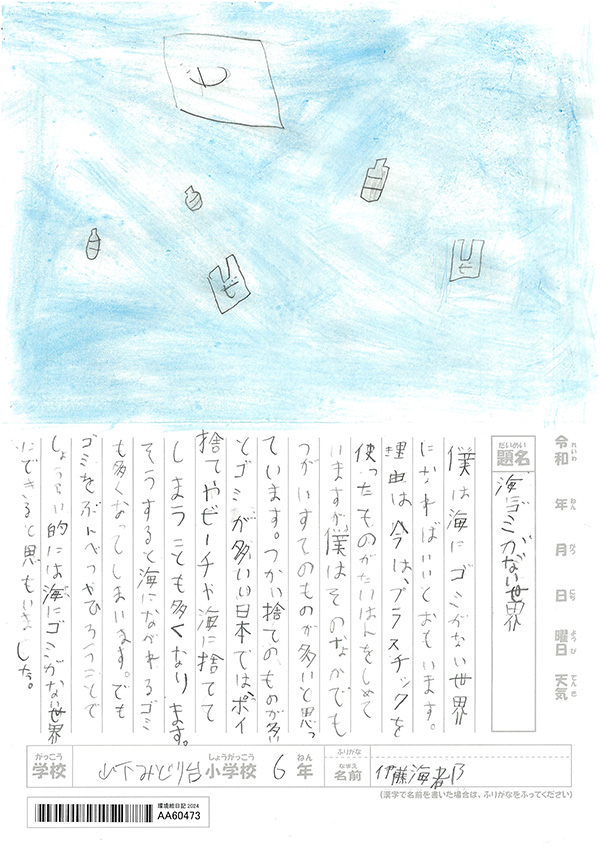 令和 年 月 日 曜日 天気
れいわ ねん がつ にち ようび てんき
だいめい
題名
海にゴミがない世界
僕は海にゴミがない世界
になればいいとおもいます。
理由は今は、プラスチックを
使ったものがたいはんをしめて
いますが、僕はそのなかでも
つかいすてのものが多いと思っ
ています。つかい捨てのものが多い
とゴミが多いい日本では、ポイ
捨てやビーチや海に捨てて
しまうことも多くなります。
そうすると海にながれるゴミ
も多くなってしまいます。でも
ゴミをぶんべつやひろうことで
しょうらい的には海にゴミがない世界
にできると思もいました。
がっこう
学校
山下みどり台
しょうがっこう
小学校
6
ねん
年
ふりがな
なまえ
名前
伊藤海
(漢字で名前を書いた場合は、ふりがなをふってください)
環境絵日記 2024
AA60473